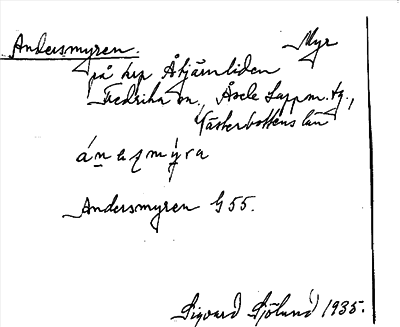 Andersmyren. Myr
på krp Åtjärnliden
Fredrika sn., Åsele Lappm. tg.,
Västerbottens län
Andersmyren G 55.
Sigvard Sjölund 1935.